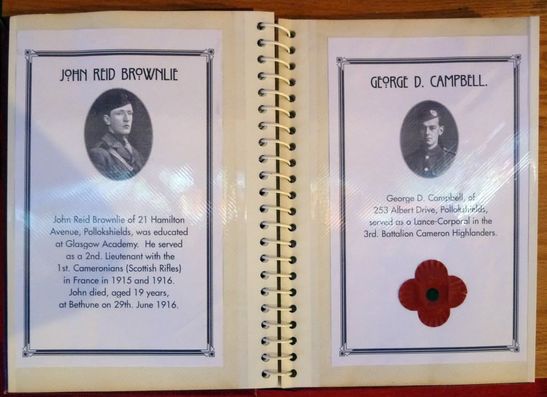 JOHN REID BROWNLIE
John Reid Brownlie of 21 Hamilton
Avenue, Pollokshields, was educated
at Glasgow Academy. He served
as a 2nd. Lieutenant with the
1st. Cameronians (Scottish Rifles)
in France in 1915 and 1916.
John died, aged 19 years,
at Bethune on 29th. June 1916.
GEORGE D. CAMPBELL.
George D. Campbell, of
253 Albert Drive, Pollokshields,
served as a Lance-Corporal in the
3rd. Battalion Cameron Highlanders.